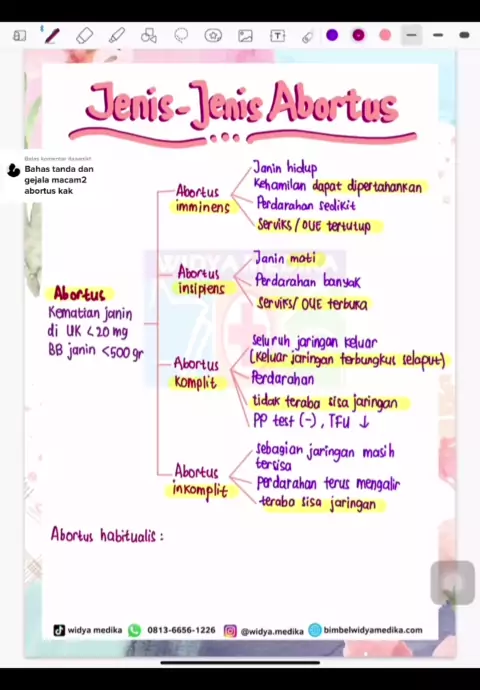 Jenis-Jenis Abortus
Balas komentar
Bahas tanda dan
gejala macam2
abortus kak
Abortus
Kematian janin
di UK <20 mg
BB janin <500 gr
Abortus
imminens
Janin hidup
Kehamilan dapat dipertahankan
Perdarahan sedikit
Serviks/OUE tertutup
Abortus
insipiens
Janin mati
Perdarahan banyak
Serviks/OUE terbuka
Abortus
komplit
seluruh jaringan keluar
(keluar jaringan terbungkus selaput)
Perdarahan
tidak teraba sisa jaringan
PP test (-), TFU ↓
Abortus
inkomplit
sebagian jaringan masih
tersisa
perdarahan terus mengalir
teraba sisa jaringan
Abortus habitualis :
WIDYA MEDIKA
widya medika
0813-6656-1226
@widya.medika
bimbelwidyamedika.com